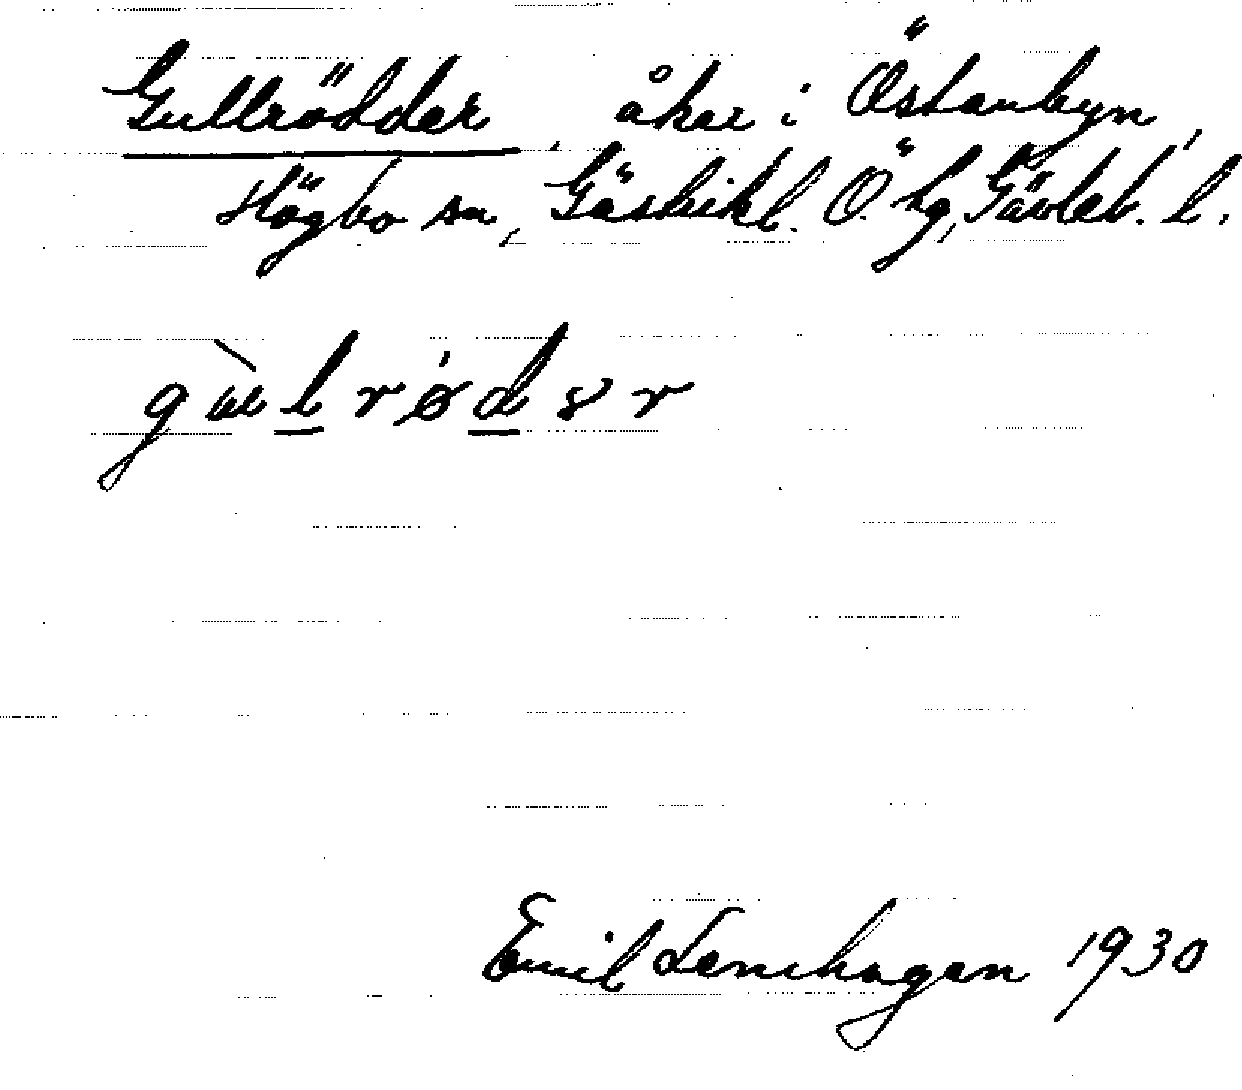 Gullrödder, åker i Östanbyn,
Högbo sn, Gästrikl. Ö. hg, Gävleb. l.
Emil Lenhagen 1930